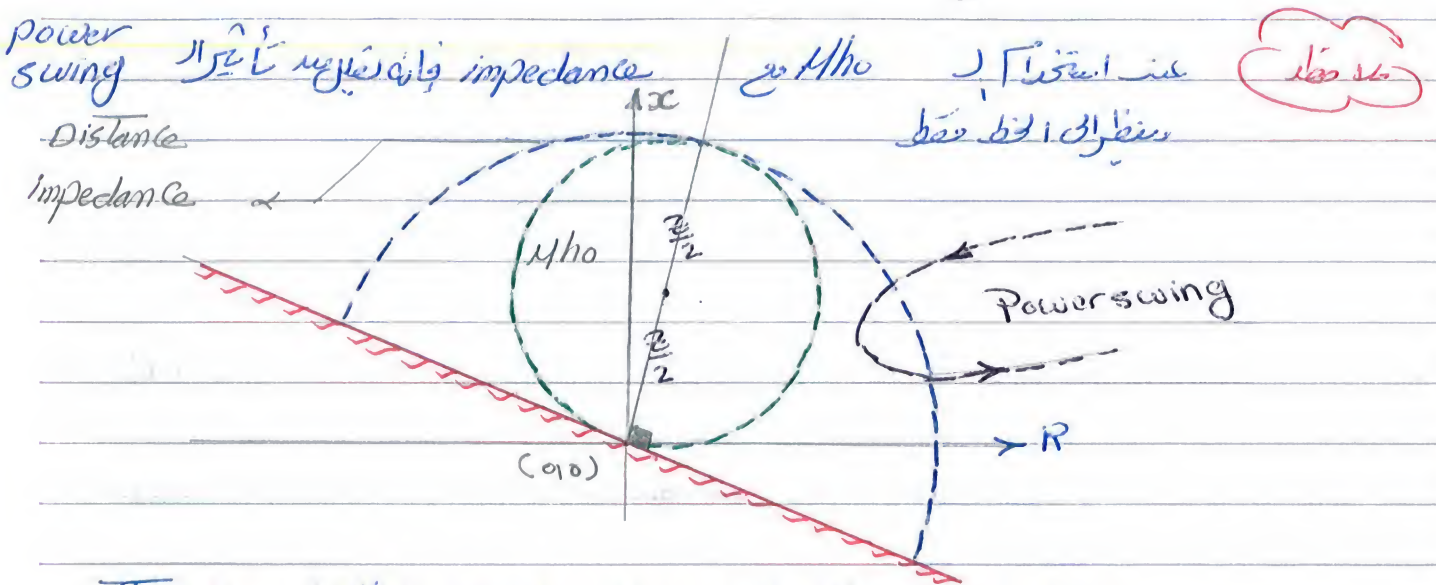 ملاحظة
عند استخدام الـ Mho مع impedance فإنه تقليل من تأثير الـ power swing
ينظر إلى الخط فقط
Distance
Impedance
x
Mho
Z/2
Z/2
Power swing
R
(0,0)